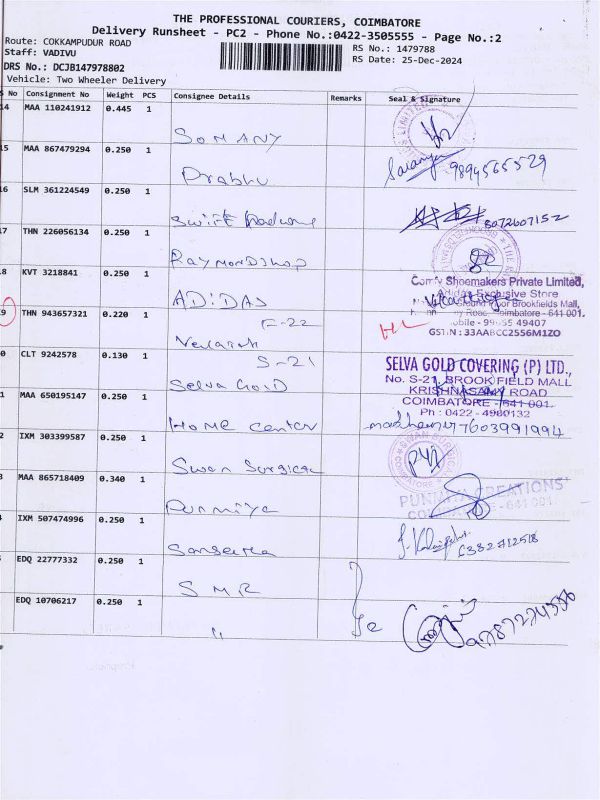 THE PROFESSIONAL COURIERS, COIMBATORE
Delivery Runsheet - PC2 - Phone No.:0422-3505555 - Page No.:2
Route: COKKAMPUDUR ROAD
RS No.: 1479788
Staff: VADIVU
RS Date: 25-Dec-2024
DRS No.: DCJB147978802
Vehicle: Two Wheeler Delivery
No Consignment No Weight PCS Consignee Details Remarks Seal & Signature
14 MAA 110241912 0.445 1
SOMANY
15 MAA 867479294 0.250 1
Prabhu 9894565529
16 SLM 361224549 0.250 1
Swift 8072607152
17 THN 226056134 0.250 1
RAYMONDSHOP
18 KVT 3218841 0.250 1
ADIDAS
Comfy Shoemakers Private Limited,
Adidas Exclusive Store
Ground Floor Brookfields Mall,
Road Coimbatore - 641 001.
Mobile - 99655 49407
GSTIN : 33AABCC2556M1ZO
19 THN 943657321 0.220 1
F-22
20 CLT 9242578 0.130 1
S-21
Selva Gold
SELVA GOLD COVERING (P) LTD.,
No. S-21, BROOK FIELD MALL
KRISHNASAMY ROAD
COIMBATORE - 641 001.
Ph : 0422 - 4980132
1 MAA 650195147 0.250 1
Home Center 7603991994
2 IXM 303399587 0.250 1
Swan Surgical
3 MAA 865718409 0.340 1
Punmiya
PUNMIYA CREATIONS
COIMBATORE - 641 001.
IXM 507474996 0.250 1
EDQ 22777332 0.250 1
SMR
EDQ 10706217 0.250 1
"